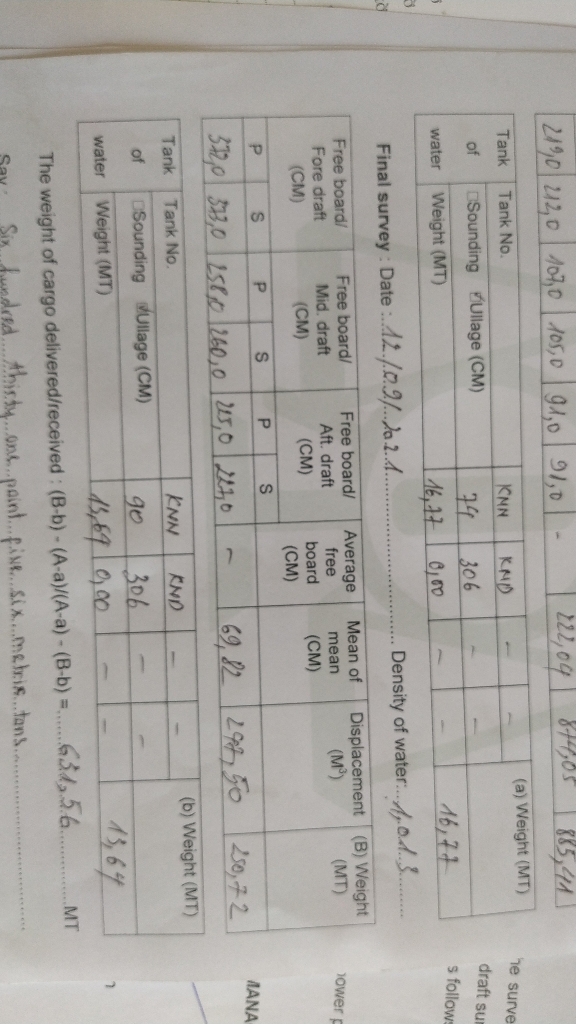 219,0 212,0 107,0 105,0 91,0 91,0 - 222,04 874,05 885,41
Tank Tank No. KNN KND - - (a) Weight (MT)
of □Sounding ☑Ullage (CM) 74 306 - -
water Weight (MT) 16,77 0,00 - - 16,77
Final survey : Date :...12./.09/..2021........ Density of water...1,013........
Free board/ Fore draft (CM) Free board/ Mid. draft (CM) Free board/ Aft. draft (CM) Average free board (CM) Mean of mean (CM) Displacement (M³) (B) Weight (MT)
P S P S P S
372,0 373,0 258,0 260,0 225,0 227,0 - 69,82 50 250,72
Tank Tank No. KNN KND - - (b) Weight (MT)
of □Sounding ☑Ullage (CM) 90 306 - -
water Weight (MT) 13,64 0,00 - - 13,64
The weight of cargo delivered/received : (B-b) - (A-a)/(A-a) - (B-b) =........631,56........MT
Say : Six hundred thirty one point five six metric tons
he surve
draft su
s follows
ower p
MANA